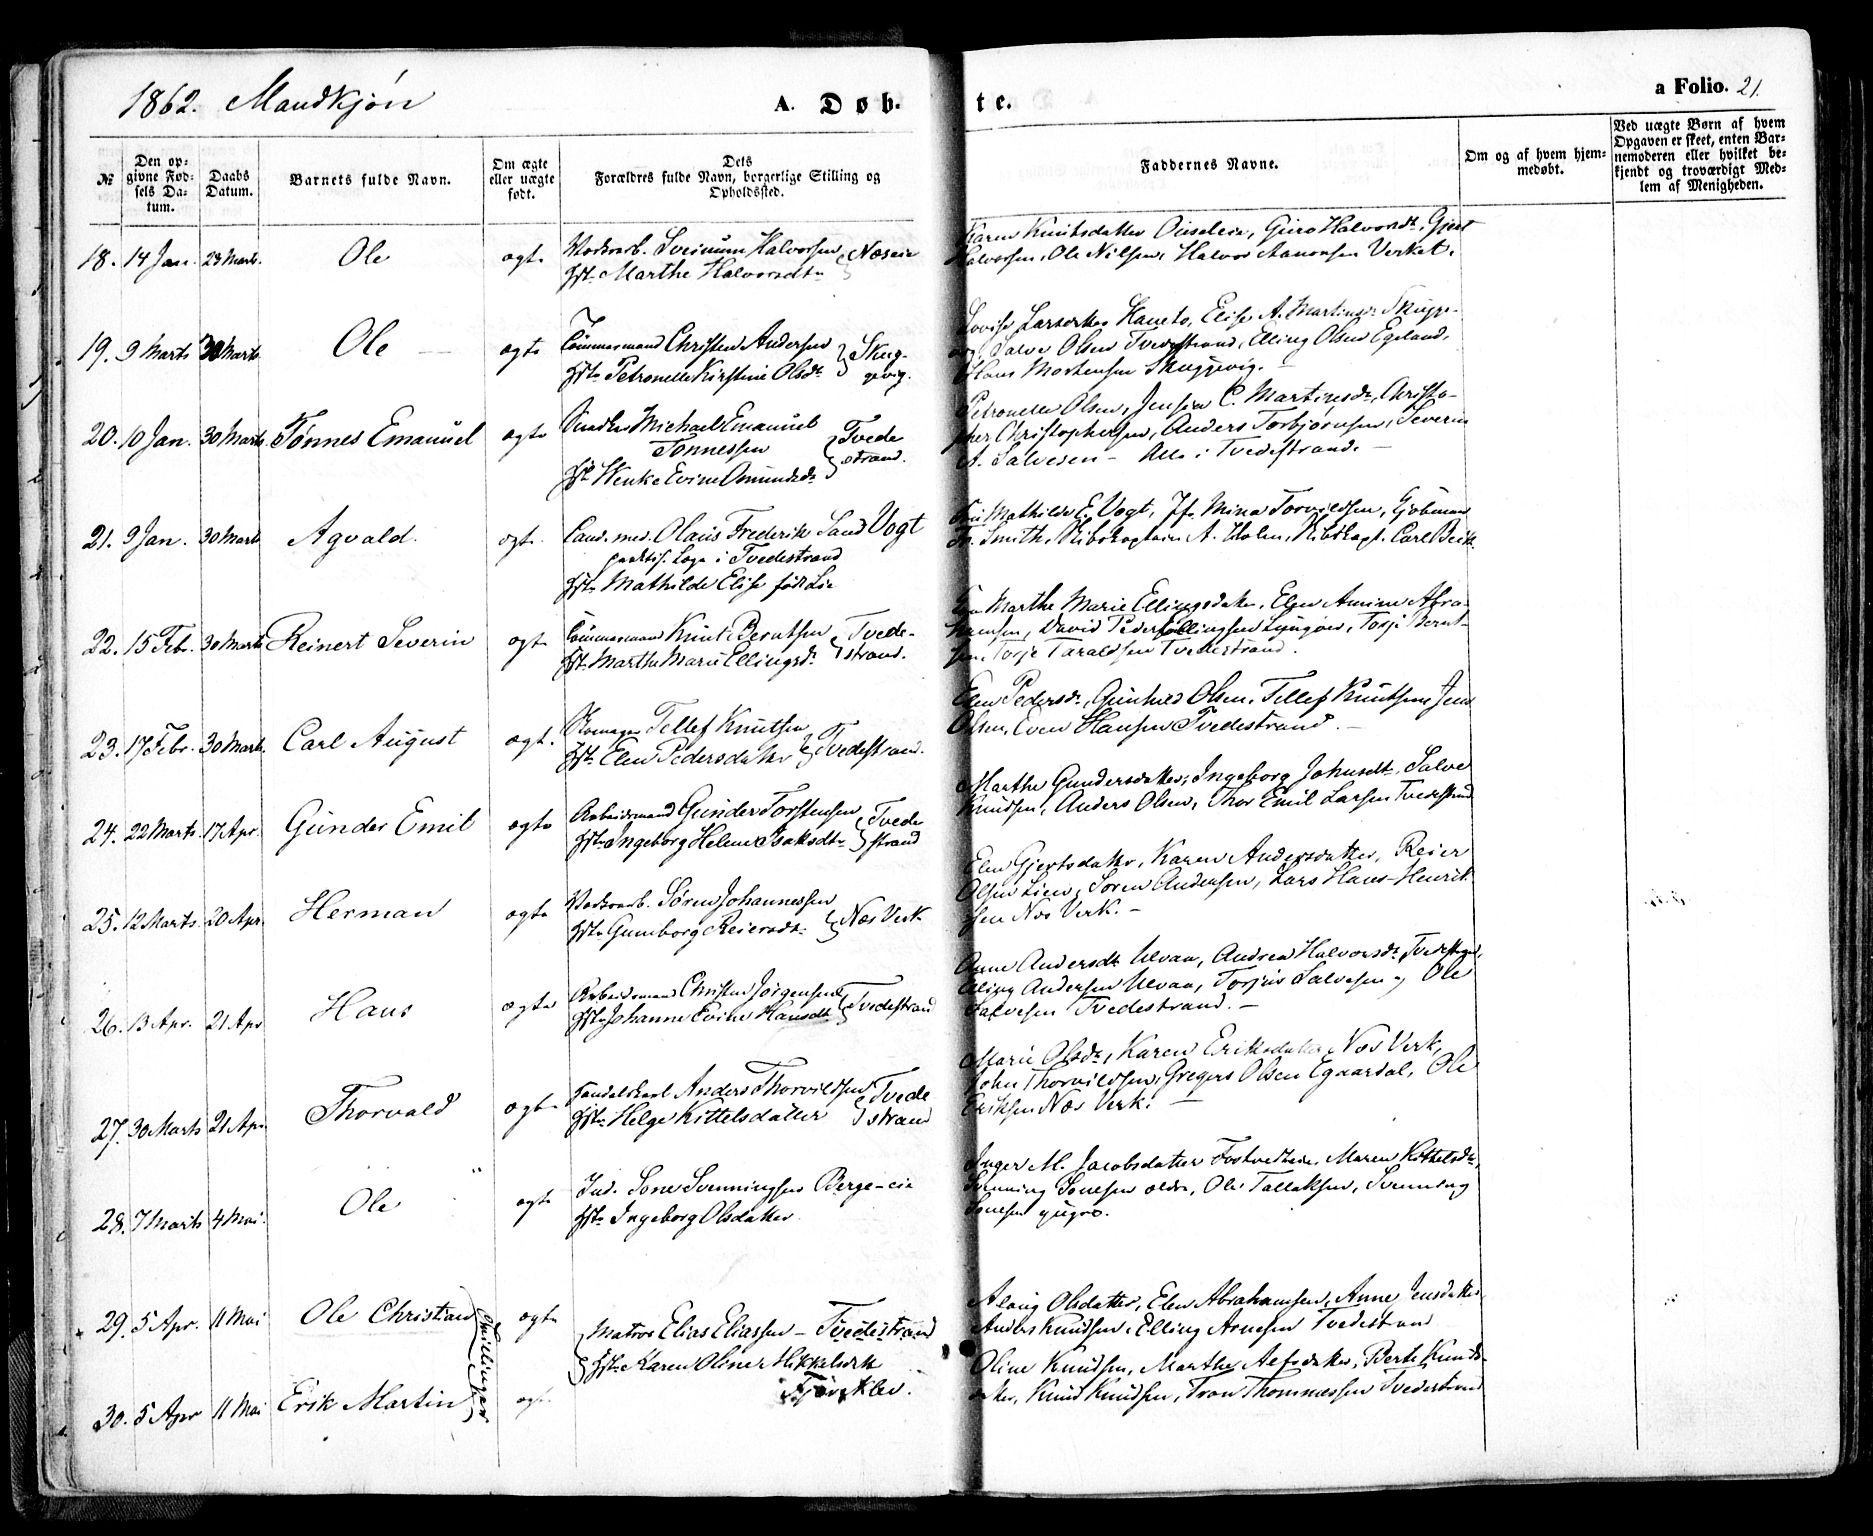 1862. Mandkjøn
A. Døb-
te.
a Folio. 21.
№
Den op-
givne Fød-
sels Da-
tum.
Daabs
Datum.
Barnets fulde Navn.
Om ægte
eller uægte
født.
Dets
Forældres fulde Navn, borgerlige Stilling og
Opholdssted.
Faddernes Navne.
Om og af hvem hjem-
medøbt.
Ved uægte Børn af hvem
Opgaven er skeet, enten Bar-
nemoderen eller hvilket be-
kjendt og troværdigt Med-
lem af Menigheden.
18. 14 Jan. 23 Marts. Ole ægte
Halvorsen
Hst. Marthe Halvorsdtr
Næseie
Karen Knutsdatter Guro Halvorsdt. Gjert
Halvorsen, Ole Nilsen, Halvor Aanonsen Verket.
19. 9 Marts 30 Marts Ole ægte
Tømmermand Christen Andersen
Hst. Petronelle Kirstine Olsdt
Skug-
gevig.
Lovise Elise A. Martinsd. Skugge-
vig, Salve Olsen Tvedestrand, Elling Olsen Egeland,
Hans Mortensen Skuggevig.
20. 10 Jan. 30 Marts. Tønnes Emanuel ægte
Michael Emanuel
Tønnessen
Hst. Wenke Evine Omundsd.
Tvede
strand.
Petronelle Olsen, Jensine C. Martinsd., Christo-
pher Christophersen, Anders Torbjørnsen, Severin
A. Salvesen - Alle i Tvedestrand. -
21. 9 Jan. 30 Marts Agvald. ægte
Cand. med. Olaus Frederik Sand Vogt
praktis. Læge i Tvedestrand
Hst. Mathilde Elise født Lie
Fru Mathilde E. Vogt, Jfr. Mina Torvildsen,
Fr. Smith, Skibskaptain A. Holm, Skibskapt. Carl
22. 15 Febr. 30 Marts Reinert Severin ægte
Tømmermand Knut Berntsen
Hst. Marthe Marie Ellingsd.
Tvede-
strand.
Marthe Marie Ellingsdatter, Elen Amine Abra-
hamsen, David Pedersen, Ellingsen Lyngør, Torje Bernt-
sen, Torje Taraldsen Tvedestrand.
23. 17 Febr. 30 Marts. Carl August ægte.
Skomager Tellef Knutsen
Hst. Elen Pedersdatter
Tvedestrand.
Elen Pedersd., Gunhild Olsen, Tellef Knutsen, Jens
Olsen, Even Hansen Tvedestrand. -
24. 22 Marts. 17 Apr. Gunder Emil ægte
Arbeidsmand Gunder Torstensen
Hst. Ingeborg Helene Isaksdtr
Tvede
strand
Marthe Gundersdatter, Ingeborg Johnsdt. Salve
Knudsen, Anders Olsen, Thor Emil Larsen Tvedestrand
25. 12 Marts. 20 Apr. Herman ægte
Verksarb. Søren Johannessen
Hst. Gumborg Reiersdt.
Næs Verk
Elen Gjertsdatter, Karen Andersdatter, Reier
Olsen Lien, Søren Andersen, Lars Hans-Henrik-
sen Næs Verk. -
26. 13 Apr. 21 Apr Hans ægte
Arbeidsmand Christen Jørgensen
Hst. Johanne Evine Hansdt
Tvedestrand
Anne Andersdt. Ulvaa, Andrea Halvorsdt. Tvedestrand,
Elling Andersen Ulvaa, Torjus Salvesen og Ole
Salvesen Tvedestrand. -
27. 30 Marts 21 Apr Thorvald ægte
Handelskarl Anders Thorvildsen
Hst. Helge Kittelsdatter
Tvede
strand
Marie Olsd., Karen Eriksdatter Næs Verk,
John Thorvildsen, Gregers Olsen Egaardal, Ole
Eriksen Næs Verk. -
28. 7 Marts 4 Mai. Ole ægte
Ind. Sone Svenningsen Berge-eie
Hst. Ingeborg Olsdatter.
Inger M. Jacobsdatter Maren Kittelsd.,
Svenning Sonesen ældre, Ole Tallaksen, Svenning
Sonesen yngre.
29. 5 Apr. 11 Mai Ole Christian ægte
Tvillinger
Matros Elias Eliassen - Tvedestrand
Hst. Karen Oline Mikkelsdtr
Olsdatter, Elen Abrahamsen, Anne Jensdatter
Anders Knudsen, Elling Arnesen Tvedestrand
30. 5 Apr 11 Mai Erik Martin ægte
Oline Knudsen, Marthe Berte Knuds-
datter, Knud Knudsen, Tron Thommessen Tvedestrand